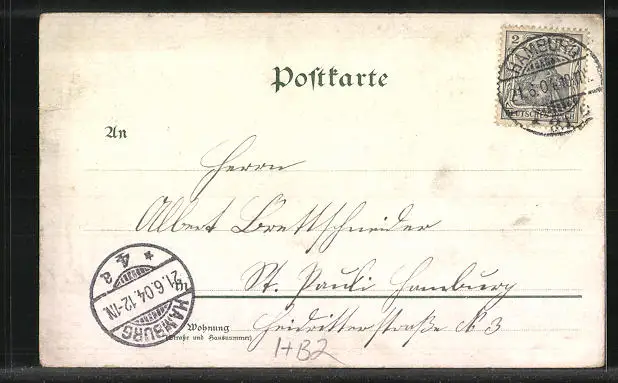 Postkarte
2
HAMBURG
21.6.04.10-11V.
DEUTSCHES REICH
An
Herrn
Albert Brettschneider
St. Pauli Hamburg
in
Wohnung
(Straße und Hausnummer)
Heidritterstraße N 3
HB2
HAMBURG
21.6.04.12-1N
* 4 a